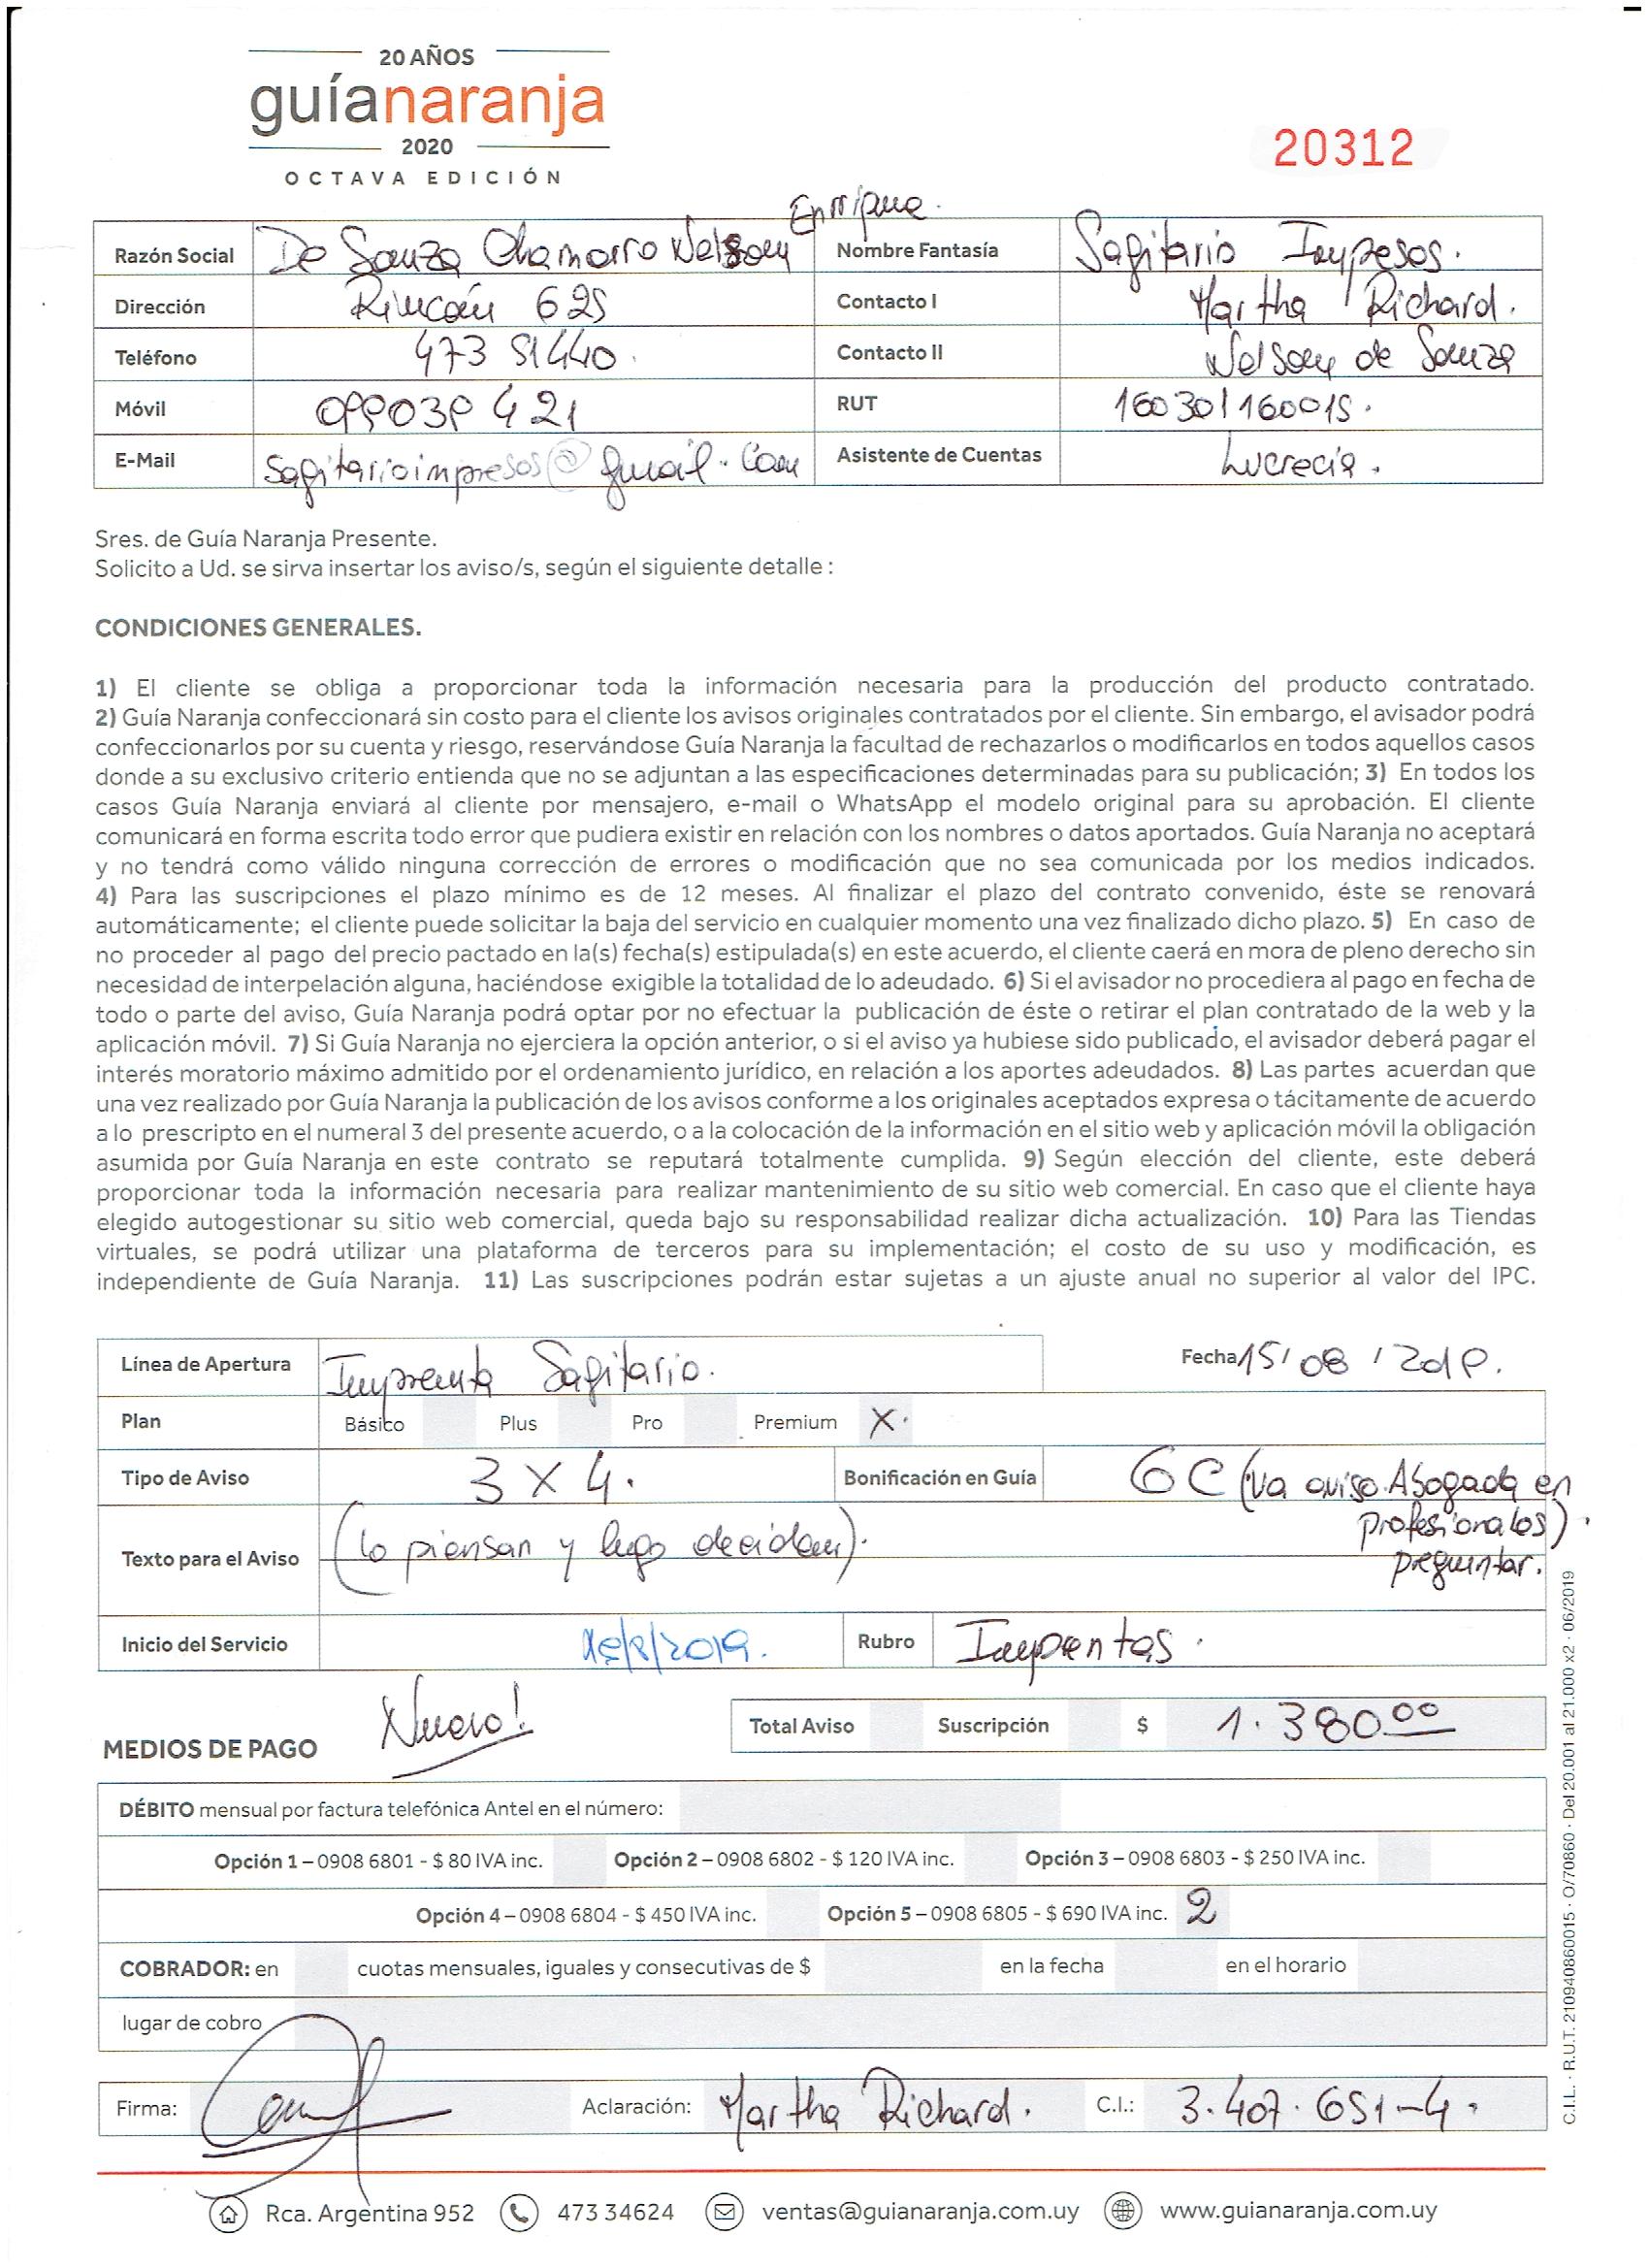 20 AÑOS
guíanaranja
2020
OCTAVA EDICIÓN
20312
Enrique.
Razón Social De Souza Chamorro Nelson Nombre Fantasía Sagitario Impresos.
Dirección Rincón 625 Contacto I Martha Richard.
Teléfono 473 51440. Contacto II Nelson de Souza
Móvil 099039 421 RUT 160301160015.
E-Mail sagitarioimpresos@gmail.com Asistente de Cuentas Lucrecia.
Sres. de Guía Naranja Presente.
Solicito a Ud. se sirva insertar los aviso/s, según el siguiente detalle :
CONDICIONES GENERALES.
1) El cliente se obliga a proporcionar toda la información necesaria para la producción del producto contratado.
2) Guía Naranja confeccionará sin costo para el cliente los avisos originales contratados por el cliente. Sin embargo, el avisador podrá
confeccionarlos por su cuenta y riesgo, reservándose Guía Naranja la facultad de rechazarlos o modificarlos en todos aquellos casos
donde a su exclusivo criterio entienda que no se adjuntan a las especificaciones determinadas para su publicación; 3) En todos los
casos Guía Naranja enviará al cliente por mensajero, e-mail o WhatsApp el modelo original para su aprobación. El cliente
comunicará en forma escrita todo error que pudiera existir en relación con los nombres o datos aportados. Guía Naranja no aceptará
y no tendrá como válido ninguna corrección de errores o modificación que no sea comunicada por los medios indicados.
4) Para las suscripciones el plazo mínimo es de 12 meses. Al finalizar el plazo del contrato convenido, éste se renovará
automáticamente; el cliente puede solicitar la baja del servicio en cualquier momento una vez finalizado dicho plazo. 5) En caso de
no proceder al pago del precio pactado en la(s) fecha(s) estipulada(s) en este acuerdo, el cliente caerá en mora de pleno derecho sin
necesidad de interpelación alguna, haciéndose exigible la totalidad de lo adeudado. 6) Si el avisador no procediera al pago en fecha de
todo o parte del aviso, Guía Naranja podrá optar por no efectuar la publicación de éste o retirar el plan contratado de la web y la
aplicación móvil. 7) Si Guía Naranja no ejerciera la opción anterior, o si el aviso ya hubiese sido publicado, el avisador deberá pagar el
interés moratorio máximo admitido por el ordenamiento jurídico, en relación a los aportes adeudados. 8) Las partes acuerdan que
una vez realizado por Guía Naranja la publicación de los avisos conforme a los originales aceptados expresa o tácitamente de acuerdo
a lo prescripto en el numeral 3 del presente acuerdo, o a la colocación de la información en el sitio web y aplicación móvil la obligación
asumida por Guía Naranja en este contrato se reputará totalmente cumplida. 9) Según elección del cliente, este deberá
proporcionar toda la información necesaria para realizar mantenimiento de su sitio web comercial. En caso que el cliente haya
elegido autogestionar su sitio web comercial, queda bajo su responsabilidad realizar dicha actualización. 10) Para las Tiendas
virtuales, se podrá utilizar una plataforma de terceros para su implementación; el costo de su uso y modificación, es
independiente de Guía Naranja. 11) Las suscripciones podrán estar sujetas a un ajuste anual no superior al valor del IPC.
Línea de Apertura Imprenta Sagitario. Fecha 15/08/2019.
Plan Básico Plus Pro Premium X.
Tipo de Aviso 3 X 4. Bonificación en Guía 6C (va aviso Abogada en
profesionales).
Texto para el Aviso (lo piensan y luego deciden). preguntar.
Inicio del Servicio Rubro Imprentas.
Nuevo!
Total Aviso Suscripción $ 1.380 00
MEDIOS DE PAGO
DÉBITO mensual por factura telefónica Antel en el número:
Opción 1 – 0908 6801 - $ 80 IVA inc. Opción 2 – 0908 6802 - $ 120 IVA inc. Opción 3 – 0908 6803 - $ 250 IVA inc.
Opción 4 – 0908 6804 - $ 450 IVA inc. Opción 5 – 0908 6805 - $ 690 IVA inc. 2
COBRADOR: en cuotas mensuales, iguales y consecutivas de $ en la fecha en el horario
lugar de cobro
Firma: Aclaración: Martha Richard. C.I.: 3.407.651-4.
C.I.L. · R.U.T. 210940860015 · O/70860 · Del 20.001 al 21.000 x2 · 06/2019
Rca. Argentina 952 473 34624 ventas@guianaranja.com.uy www.guianaranja.com.uy